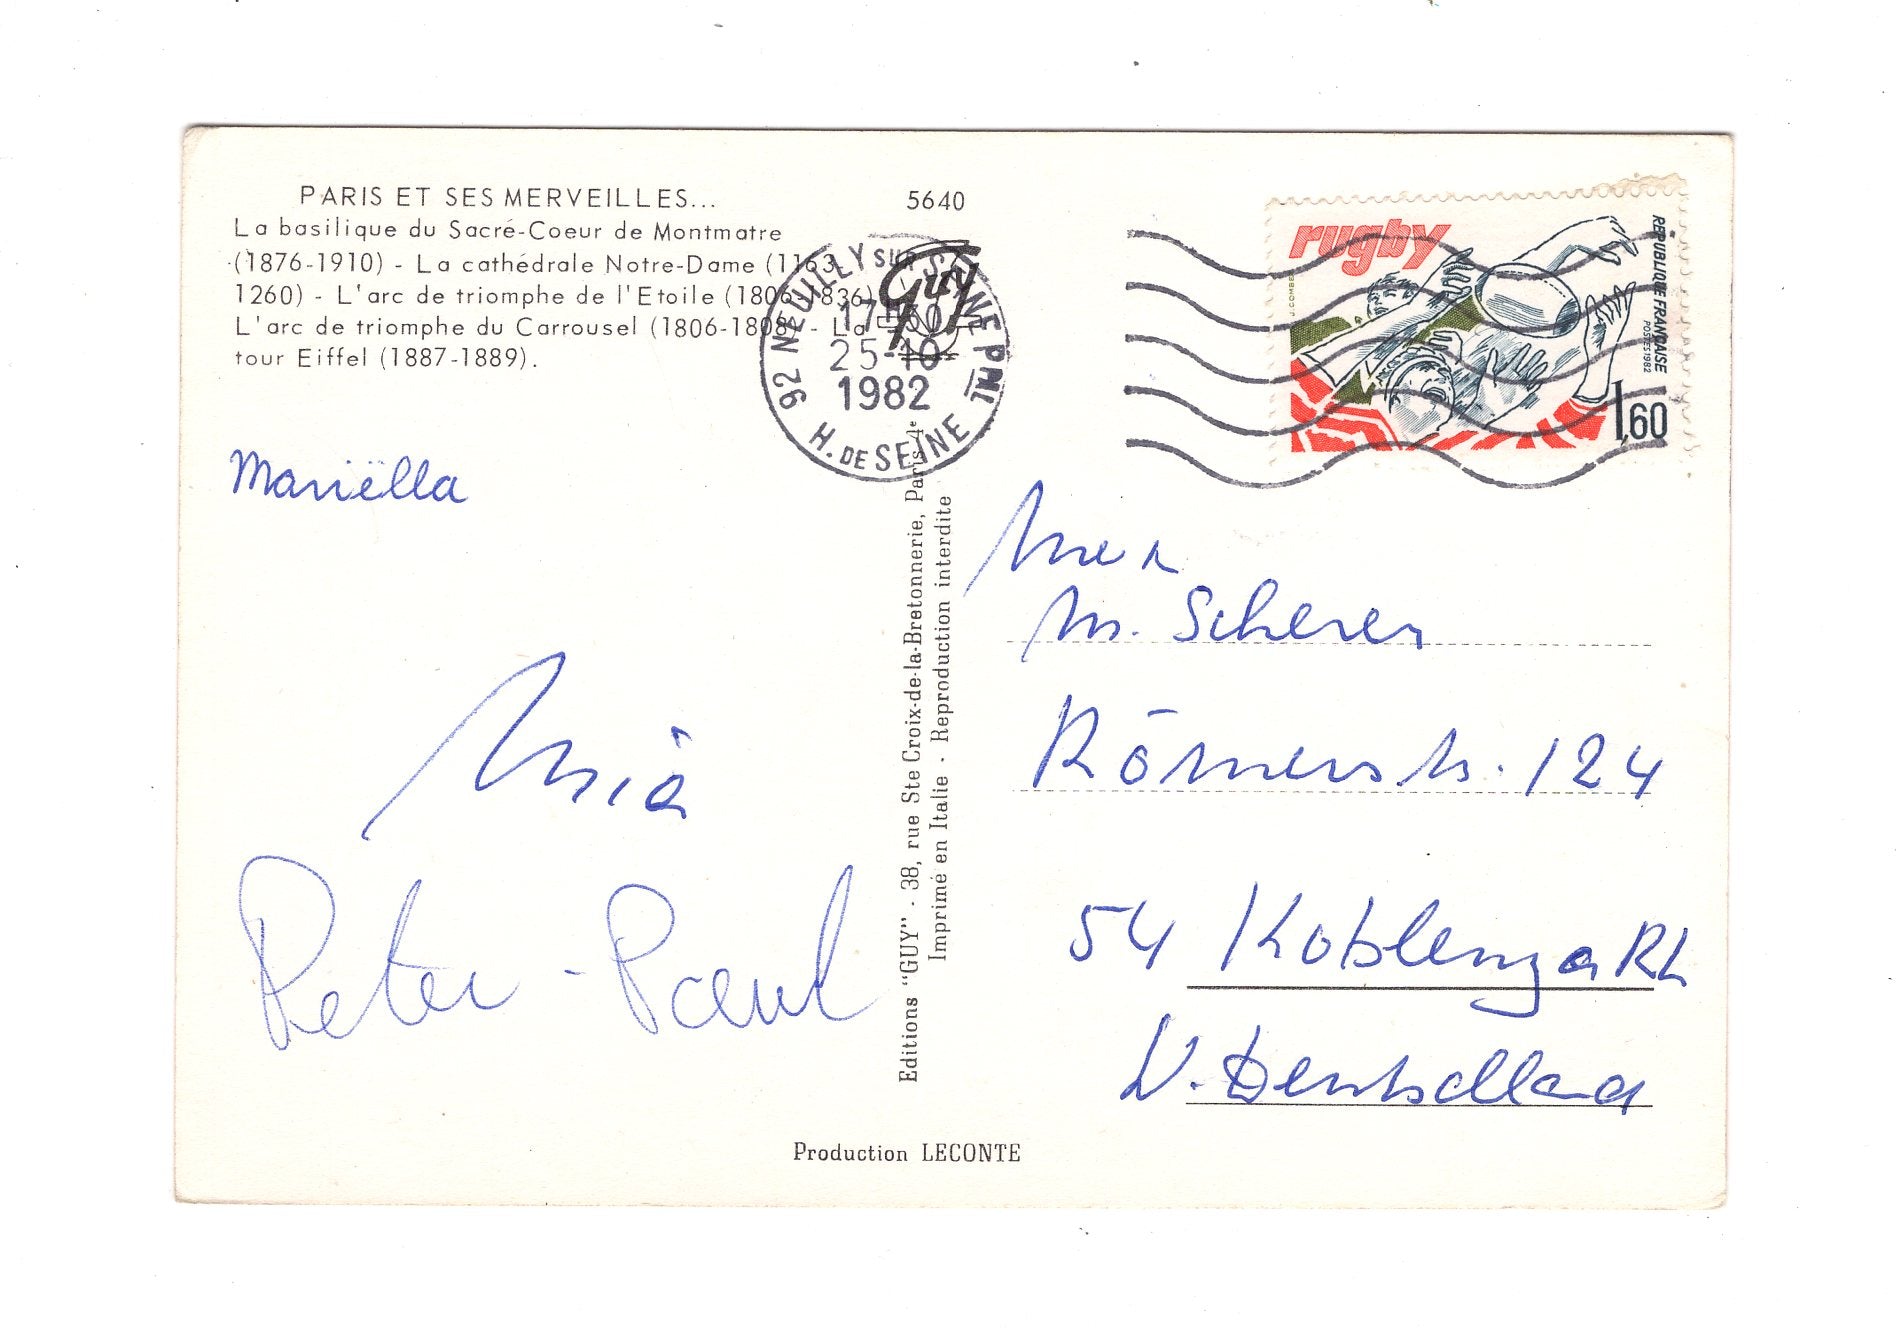 PARIS ET SES MERVEILLES...
5640
La basilique du Sacré-Coeur de Montmatre
(1876-1910) - La cathédrale Notre-Dame (1163
1260) - L'arc de triomphe de l'Etoile (1806-1836)
L'arc de triomphe du Carrousel (1806-1808) - La
tour Eiffel (1887-1889).
Guy
92 NEUILLY SUR SEINE PPAL
17H30
25-10
1982
H. DE SEINE
rugby
REPUBLIQUE FRANÇAISE
POSTES 1982
J.COMBET
1,60
Mariëlla
Mia
Peter-Paul
Editions "GUY" - 38, rue Ste Croix-de-la-Bretonnerie, Paris 4e
Imprimé en Italie - Reproduction interdite
M. Scherer
Römerstr. 124
54 Koblenz a Rh
W. Deutschland
Production LECONTE